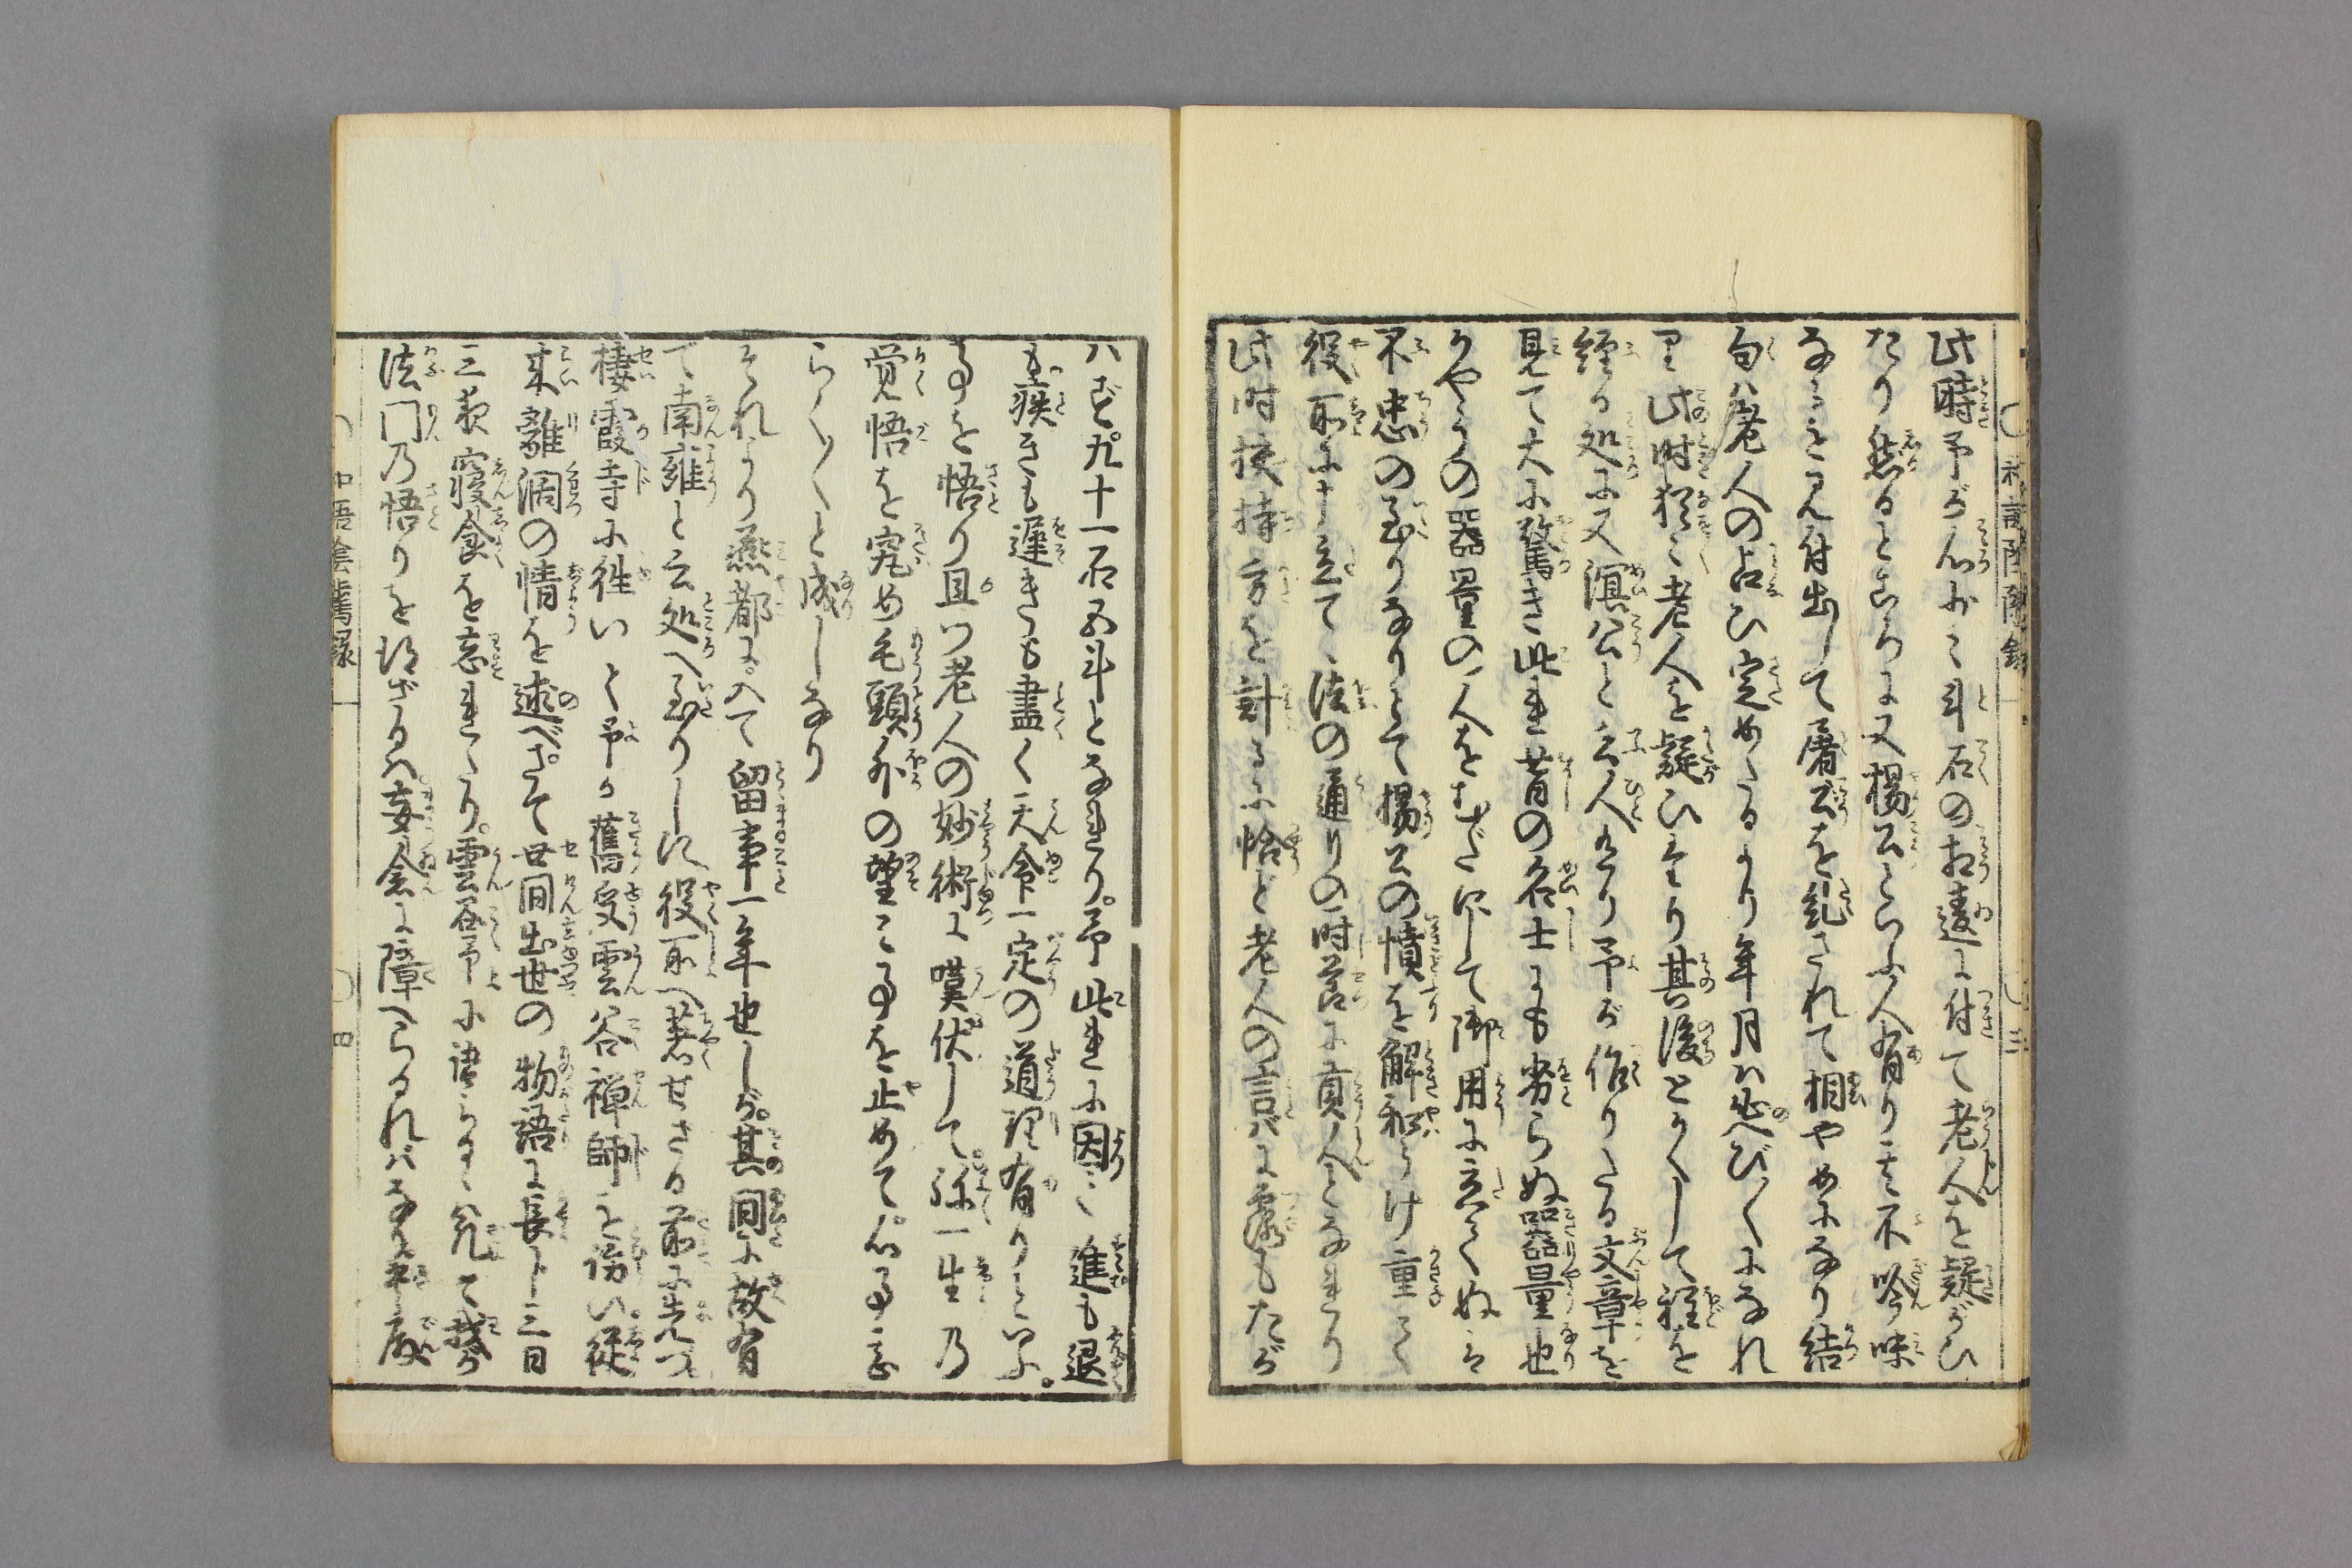 此時予が心に斗石の相違に付て老人を疑がひ
たり然るところに又楊公といふ人有り其不吟味
なることを見付出して屠公を糺されて相やめになり結
句ハ老人の占ひ定めたるより年月ハ延びくになれ
り此時猶々老人を疑ひ
其後とかくして程を
経る処に又溟公と云人有り予が作りたる文章を
見て大に驚き此は昔の名士にも劣らぬ器量也
かやうの器量の人をむだにして御用に立てぬは
不忠の至りなりとて楊公の憤を解和らけ重て
役所に立て法の通りの時節に貢人となれり
此時扶持方を計るに恰ど老人の言ばに露もたが
ハず九十一石五斗となれり予此に因て進も退
も疾きも遅きも盡く天命一定の道理有りといふ
事を悟り且つ老人の妙術に嘆伏して弥一生乃
覚悟を究め毛頭外の望ことを止めて心の
らくらくと成しなり
それより燕都に入て留事一年也しが其間に故有
て南雍と云処へ至りしに役所へ着せざる前に先づ
棲霞寺に徃いて予が舊友雲谷禅師を訪い従
来離濶の情を述べさて世間出世の物語に長じ三日
三夜寝食を忘れたり雲谷予に語らく凡そ我が
法門乃悟りを得ざるハ妄念に障へらるれハなり